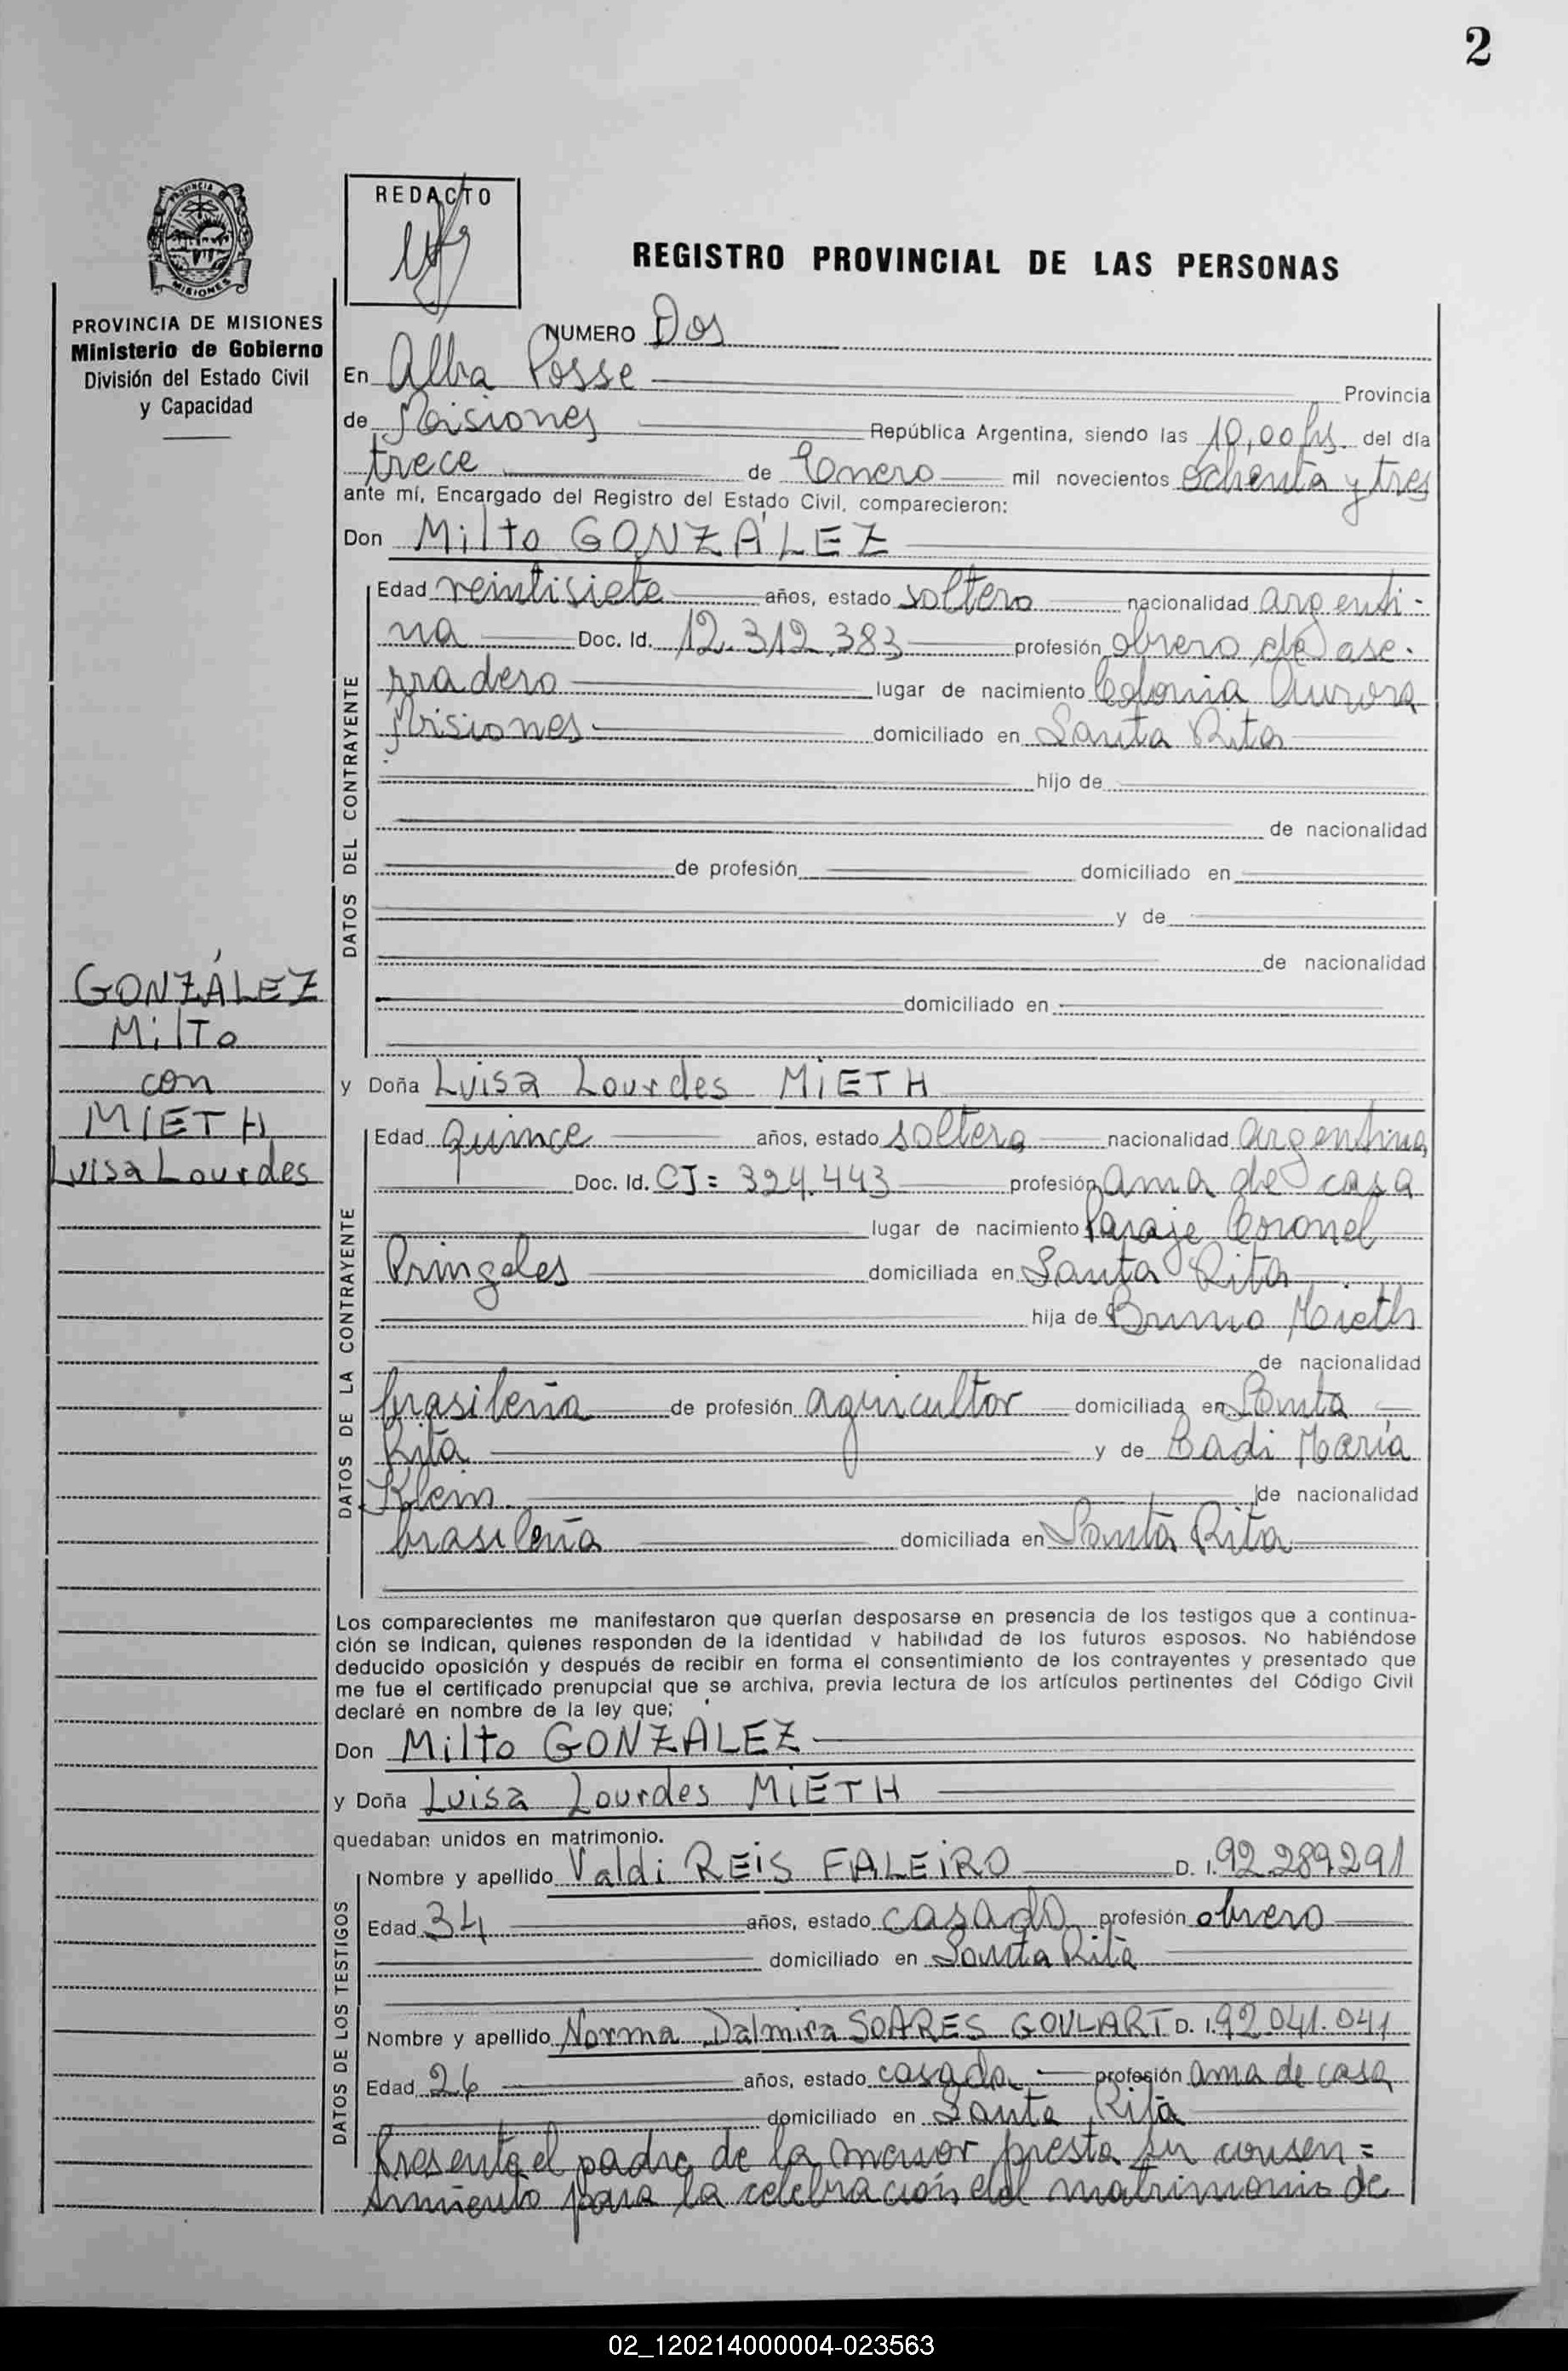 2
REDACTO
REGISTRO PROVINCIAL DE LAS PERSONAS
PROVINCIA DE MISIONES
Ministerio de Gobierno
División del Estado Civil
y Capacidad
NUMERO Dos
En Alba Posse Provincia
de Misiones República Argentina, siendo las 10,00 hs. del día
trece de Enero mil novecientos ochenta y tres
ante mí, Encargado del Registro del Estado Civil, comparecieron:
Don Milto GONZÁLEZ
DATOS DEL CONTRAYENTE
Edad veintisiete años, estado soltero nacionalidad argenti-
na Doc. Id. 12.312.383 profesión obrero de ase-
rradero lugar de nacimiento Colonia Aurora
Misiones domiciliado en Santa Rita
hijo de
de nacionalidad
de profesión domiciliado en
y de
de nacionalidad
domiciliado en
GONZÁLEZ
Milto
con
MIETH
Luisa Lourdes
y Doña Luisa Lourdes MiETH
DATOS DE LA CONTRAYENTE
Edad quince años, estado soltera nacionalidad argentina
Doc. Id. CI= 324.443 profesión ama de casa
lugar de nacimiento Paraje Coronel
Pringeles domiciliada en Santa Rita
hija de Bruno Mieth
de nacionalidad
brasileña de profesión agricultor domiciliada en Santa
Rita y de Cadi María
Klein de nacionalidad
brasileña domiciliada en Santa Rita
Los comparecientes me manifestaron que querían desposarse en presencia de los testigos que a continua-
ción se indican, quienes responden de la identidad y habilidad de los futuros esposos. No habiéndose
deducido oposición y después de recibir en forma el consentimiento de los contrayentes y presentado que
me fue el certificado prenupcial que se archiva, previa lectura de los artículos pertinentes del Código Civil
declaré en nombre de la ley que;
Don Milto GONZÁLEZ
y Doña Luisa Lourdes MiETH
quedaban unidos en matrimonio.
DATOS DE LOS TESTIGOS
Nombre y apellido Valdi REiS FALEiRO D. I. 92.289.291
Edad 34 años, estado casado profesión obrero
domiciliado en Santa Rita
Nombre y apellido Norma Dalmira SOARES GOULART D. I. 92.041.041
Edad 26 años, estado casada profesión ama de casa
domiciliado en Santa Rita
Presente el padre de la menor presta su consen=
timiento para la celebración del matrimonio de
02_120214000004-023563